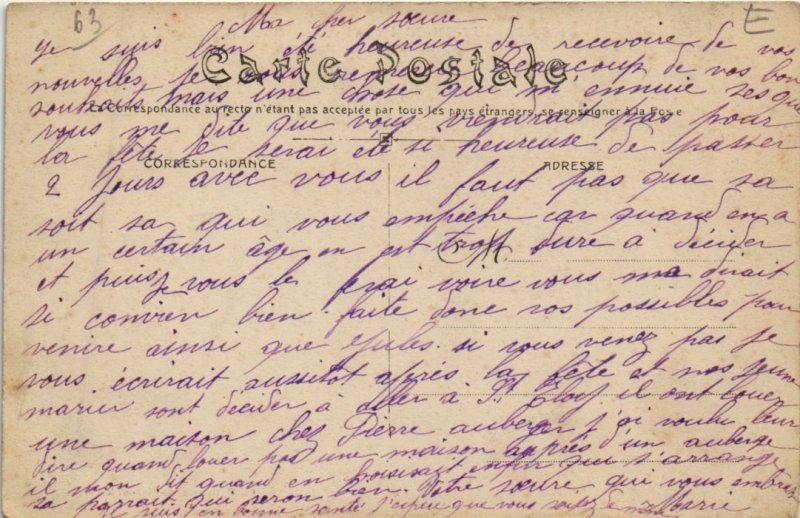 63
E
Ma cher sœure
Je suis bien été heureuse de recevoire de vos
Carte Postale
nouvelles je beaucoup de vos bon
souhait mais une chose qui m'ennuie ses que
La Correspondance au recto n'étant pas acceptée par tous les pays étrangers, se renseigner à la Poste
vous me dite que vous viendrait pas pour
la fête je serai été si heureuse de passer
CORRESPONDANCE
ADRESSE
2 jours avec vous il faut pas que sa
soit sa qui vous empêche car quand en a
un certain âge en est trop dure à décider
et puis vous le ferai voire vous ma dirait
si convien bien faite donc vos possibles pour
venire ainsi que Jules si vous venez pas je
vous écrirait aussitot après la fête et nos jeune
marier sont décider à aller à St Eloy il ont louer
une maison chez Pierre auberger j'ai voulu leur
dire quand louer pas une maison après d'un auberge
il mon dit quand en choisisait enfin qui s'arrange
sa parrait qui seron bien. Votre sœure qui vous embrasse
Je suis en bonne santé j'espère que vous soitez de même Marie